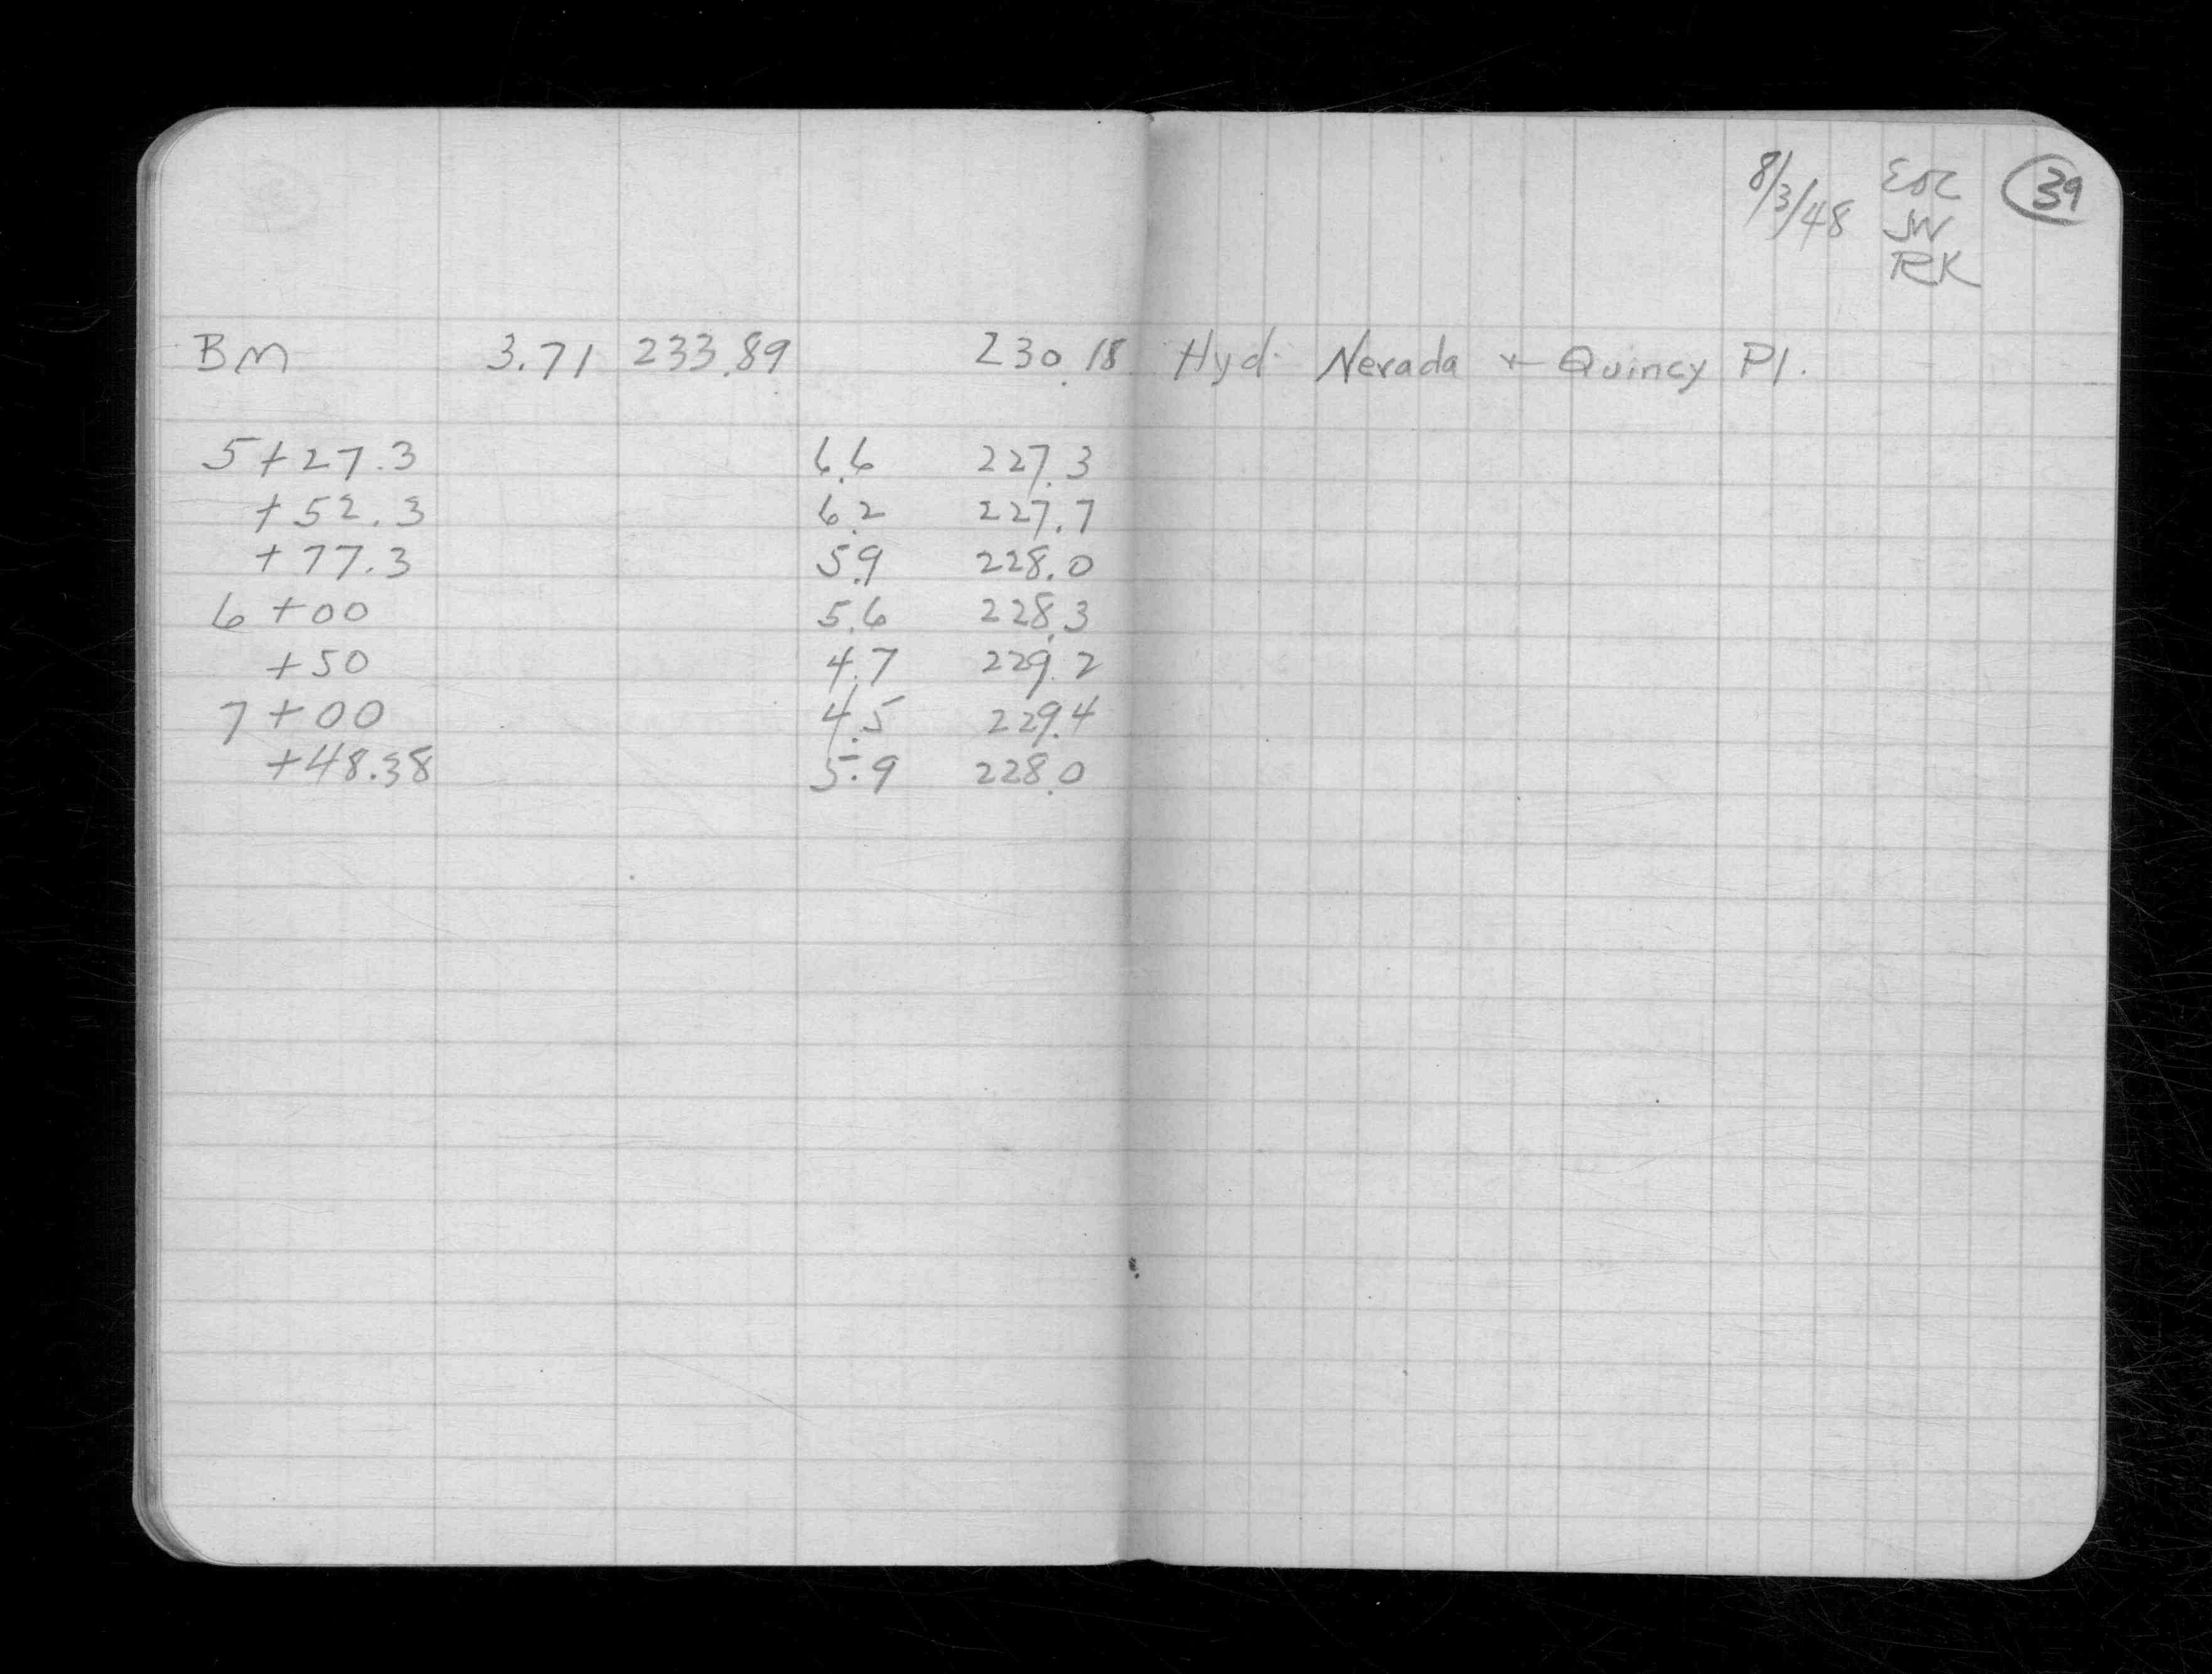 8/3/48 EOC 39
JW
RK
BM 3.71 233.89 230.18 Hyd. Nevada + Quincy Pl.
5+27.3 6.6 227.3
+52.3 6.2 227.7
+77.3 5.9 228.0
6+00 5.6 228.3
+50 4.7 229.2
7+00 4.5 229.4
+48.38 5.9 228.0